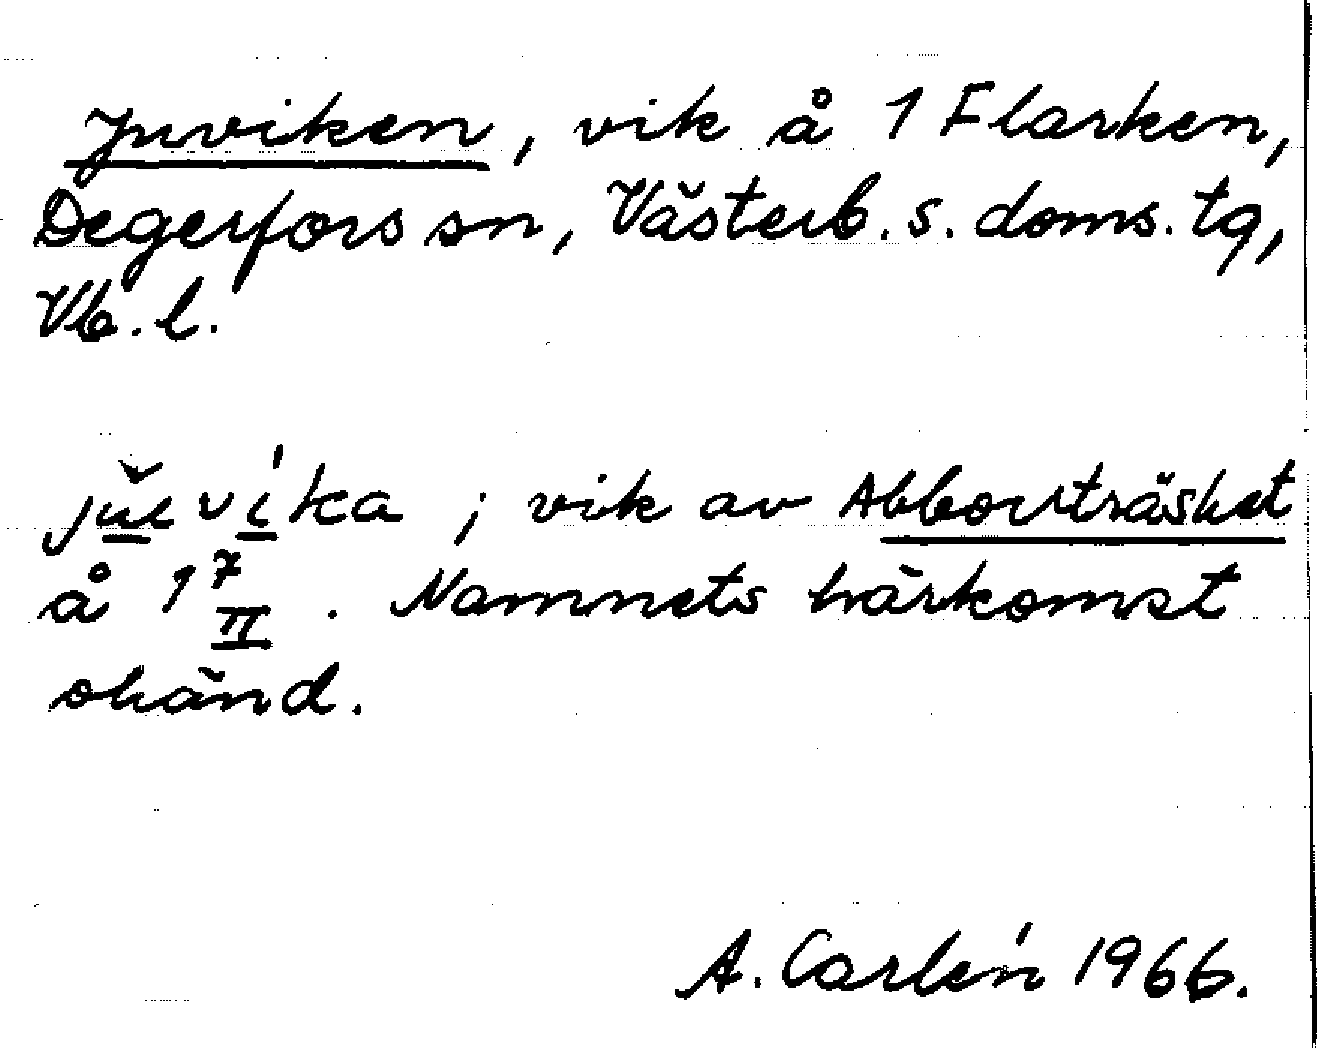 Juviken, vik å 1 Flarken,
Degerfors sn, Västerb. s. doms. tg,
Vb. l.
vika ; vik av Abborrträsket
å 1 7/II . Namnets härkomst
okänd.
A. Carlén 1966.